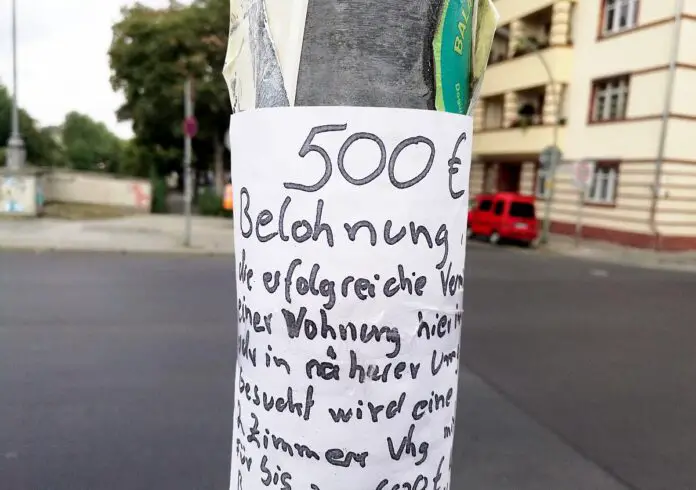 BAL
500 €
Belohnung
die erfolgreiche Ver
einer Wohnung hier i
oder in näherer Umg
Gesucht wird eine
2 Zimmer Whg mi
für bis